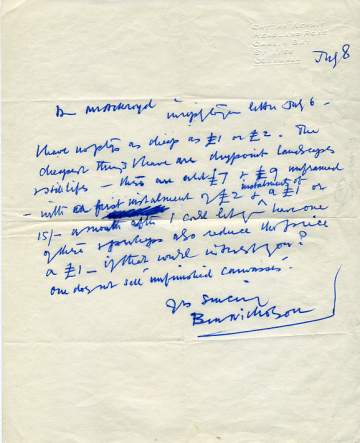 CHY AN KERRIS
HEADLAND ROAD
CARBIS BAY
ST. IVES
CORNWALL
July 8
in reply to yr letter July 6 -
I have no ptgs as cheap as £1 or £2. The
cheapest things I have are drypoint landscapes
& still lifes - these are at £7 & £9 unframed
- with a first instalment of £2 & instalments of £1 or
15/- a month after I could let you have one
of these & perhaps also reduce the price
a £1 - if that would interest you?
one does not sell unfinished canvasses.
Yrs sincerely
Ben Nicholson